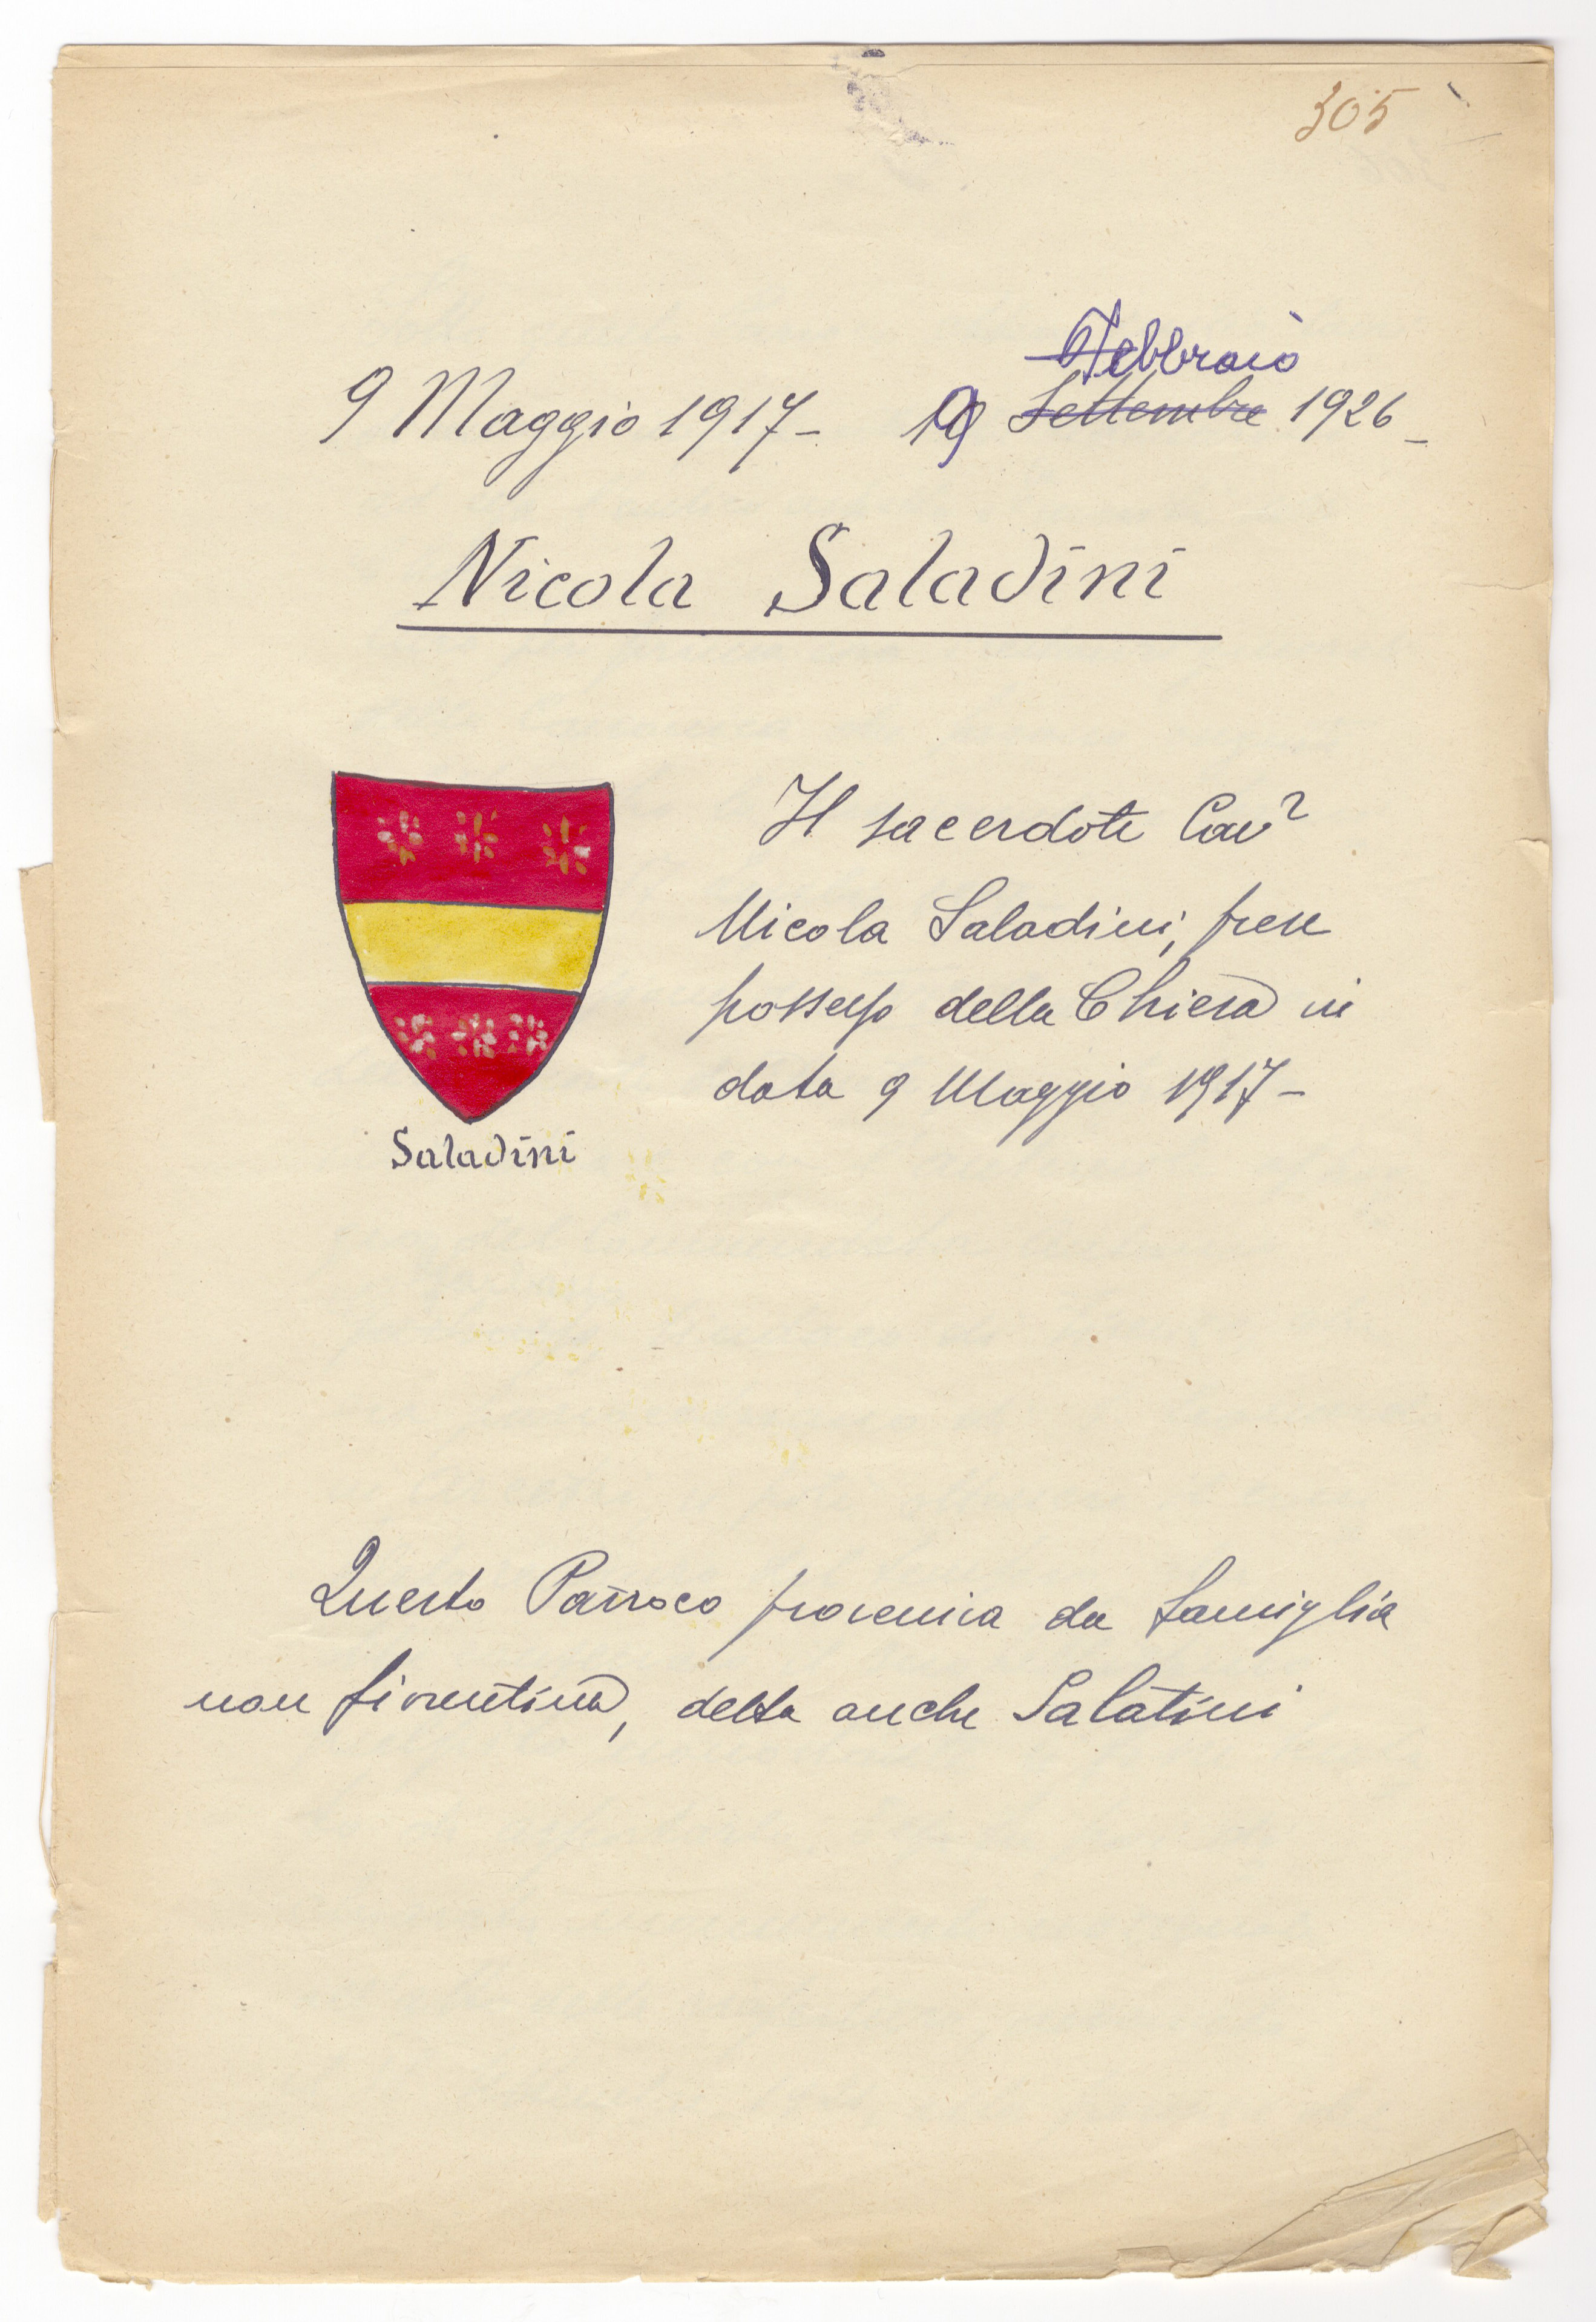 305
Febbraio
9 Maggio 1917 - 19 Settembre 1926 -
Nicola Saladini
Il sacerdote Cavr
Nicola Saladini, prese
possesso della Chiesa in
data 9 Maggio 1917 -
Saladini
Questo Parroco proveniva da famiglia
non fiorentina, detta anche Salatini